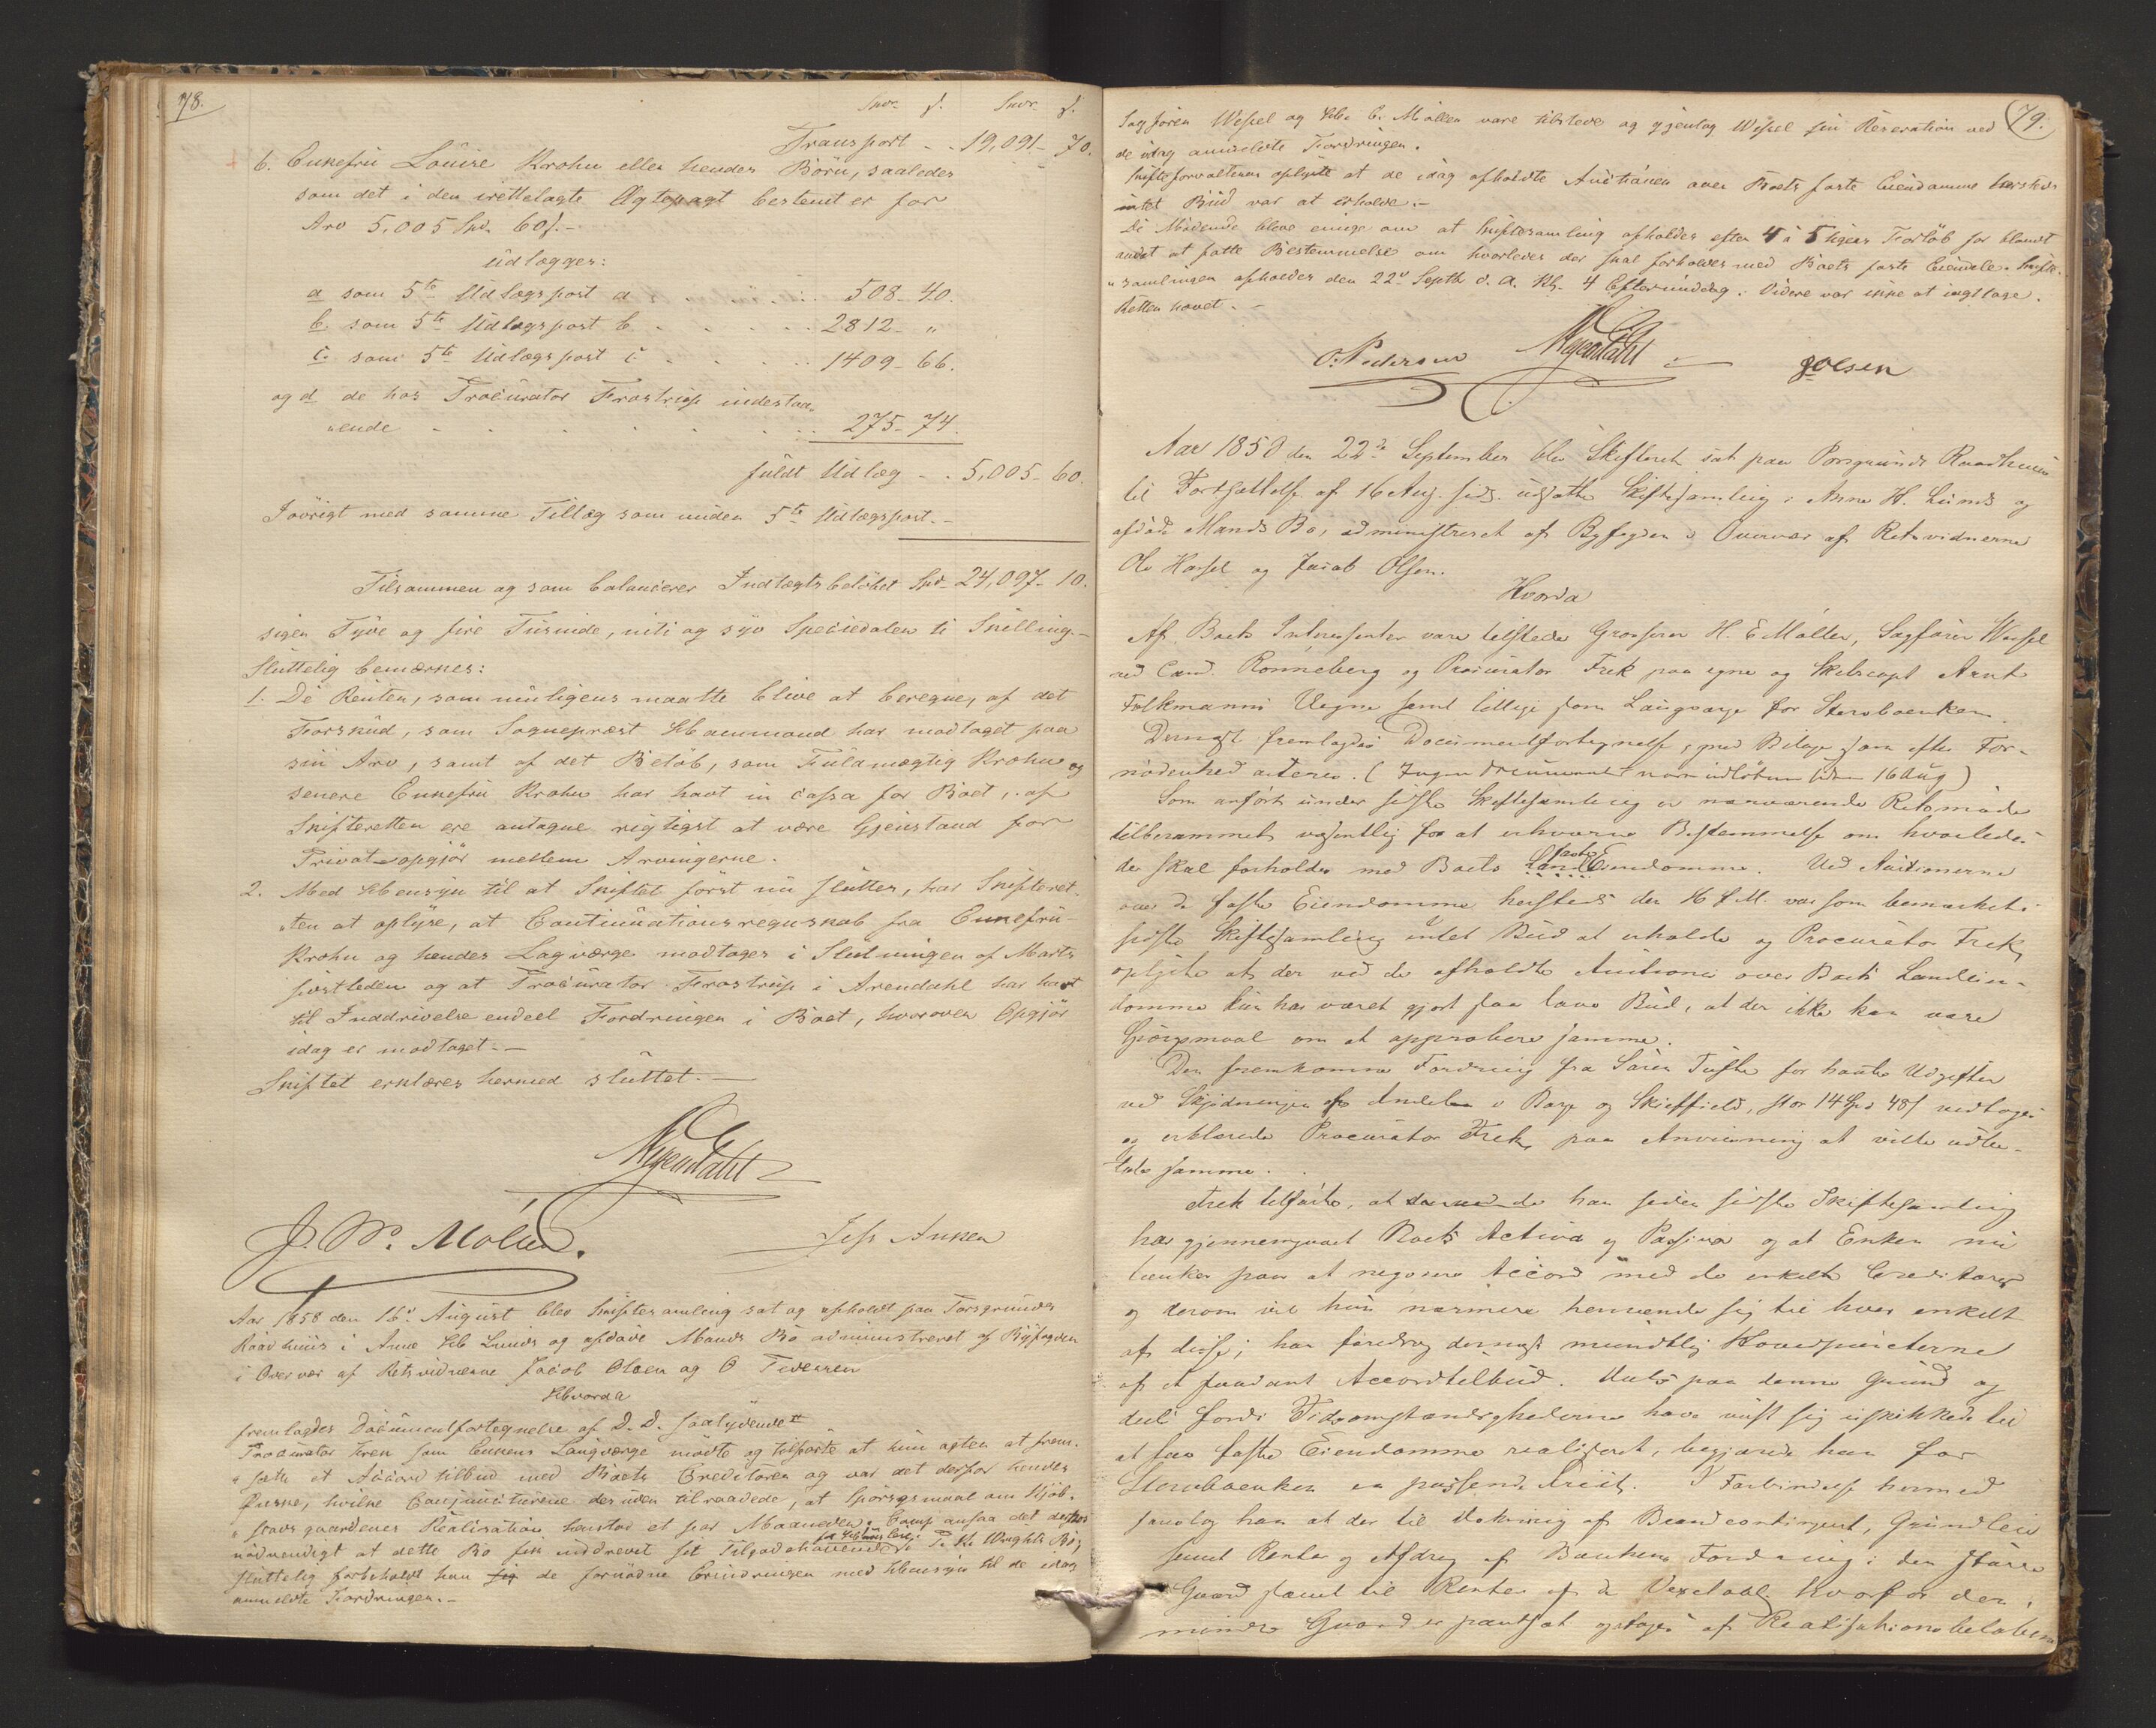 78.
Spdr. s. Spdr. s.
Transport - - 19,091 - 70.
6. Enkefru Louise Krohn eller hendes Børn, saaledes
som det i den irettelagte Ægtepagt bestemt er for
Arv 5,005 Spd. 60 s. -
udlægges:
a som 5te Udlægspost a . . . . . 508 - 40.
b. som 5te Udlægspost b . . . . . 2812 - "
c. som 5te Udlægspost c . . . . . 1409 - 66.
og d de hos Procurator Frostrup indestaa-
"ende - . . . . . . 275 - 74.
fuldt Udlæg - . 5,005 - 60.
Iøvrigt med samme Tillæg som under 5te Udlægspost. -
Tilsammen og som balancerer Indtægtsbeløbet Spd. 24,097 - 10.
siger Tyve og fire Tusinde, niti og syv Speciedaler ti Skilling. -
Sluttelig bemærkes:
1. De Renter, som muligens maatte blive at beregne, af det
Forskud, som Sogneprest Hammond har modtaget paa
sin Arv, samt af det Beløb, som Fuldmægtig Krohn og
senere Enkefru Krohn har havt in cassa for Boet, af
Skifteretten ere antagne rigtigst at være Gjenstand for
Privat-opgjør mellem Arvingerne.
2. Med Hensyn til at Skiftet først nu sluttes, har Skifteret-
"ten at oplyse, at Continuationsregnskab fra Enkefru
Krohn og hendes Lagværge modtoges i Slutningen af Marts
sidstleden og at Procurator Frostrup i Arendahl har havt
til Inddrivelse endeel Fordringer i Boet, hvorover Opgjør
idag er modtaget. -
Skiftet erklæres hermed sluttet. -
Jess Anker
Aar 1858 den 16de August blev Skiftesamling sat og afholdt paa Porsgrunds
Raadhuus i Anne H Lunds og afdøde Mands Bo administreret af Byfogden
i Overvær af Retsvidnerne Jacob Olsen og O Pedersen
Hvorda
fremlagdes Documentfortegnelse af D. D. saalydende
Procurator Frek som Enkens Laugværge mødte og tilførte at hun agter at frem-
"sætte et Accord tilbud med Boets Creditorer og var det derfor hendes
Ønske, hvilke Conjuncturerne desuden tilraadede, at Spørgsmaal om Kjøb-
"stadsgaardenes Realisation henstod et par Maaneder. Comp ansaa det derhos
nødvendigt at dette Bo fik inddrevet sit Tilgodehavende i P. H. Wrights Bo,
sluttelig forbeholdt han de fornødne Erindringer med Hensyn til de idag
anmeldte Fordringer. -
79.
Sagfører Wessel og H. E. Møller vare tilstede og gjentog Wessel sin Reservation ved
de idag anmeldte Fordringer.
Skifteforvalteren oplyste at de idag afholdte Auctioner over Boets faste Eiendomme hersteds
intet Bud var at erholde. -
De Mødende bleve enige om at Skiftesamling afholdes efter 4 à 5 Ugers Forløb for blandt
andet at fatte Bestemmelse om hvorledes der skal forholdes med Boets faste Eiendele. Skifte-
"samlingen afholdes den 22de Septbr d. A. Kl. 4 Eftermiddag. Videre var ikke at iagttage.
Retten hævet. -
O. Pedersen
J Olsen
Aar 1858 den 22de September blev Skifteret sat paa Porsgrunds Raadhuus
til Fortsættelse af 16 Aug. sids. udsatte Skiftesamling i Anne H. Lunds og
afdøde Mands Bo, administreret af Byfogden i Overvær af Retsvidnerne
Ole Hassel og Jacob Olsen.
Hvorda
Af Boets Interesenter vare tilstede Grosserer H. E Møller, Sagfører Wessel
ved Cand. Rønneberg og Procurator Frek paa egne og Skibscapt Arnt
Falkmanns Vegne samt tillige som Laugværge for Sterboenken.
Dernæst fremlagdes Documentfortegnelse med Bilage som efter For-
nødenhed acteres. (Ingen Documenter vare indløbne siden 16 Aug)
Som anført under sidste Skiftesamling er nærværende Retsmøde
tilberammet væsentlig for at erhverve Bestemmelse om hvorledes
der skal forholdes med Boets faste Eiendomme. Ved Auctionerne
over de faste Eiendomme hersteds den 16 f. M. var som bemærket i
sidste Skiftesamling intet Bud at erholde og Procurator Frek
oplyste at der ved de afholdte Auctioner over Boets Landeien-
domme kun har været gjort saa lave Bud, at der ikke kan være
Spørgsmaal om at approbere samme.
Den fremkomne Fordring fra Søren Tufte for havte Udgifter
ved Skjødningen af Andelen i Borge og Skieffield, stor 14 Spd 48 s vedtoges
og erklærede Procurator Frek paa Anviisning at ville udbe-
tale samme.
Frek tilførte, at han siden sidste Skiftesamling
har gjennemgaaet Boets Activa og Passiva og at Enken nu
tænker paa at negociere Accord med de enkelte Creditorer
og derom vil hun nærmere henvende sig til hver enkelt
af disse; han foredrog dernæst mundtlig Hovedpuncterne
af et saadant Accordtilbud. Dels paa denne Grund og
dels fordi Tidsomstændighederne have viist sig uskikkede til
at faa faste Eiendomme realiseret, begjærede han for
Sterboenken en passende Friist. I Forbindelse hermed
foreslog han at der til Dækning af Brandcontingent, Grundleie
samt Renter og Afdrag af Bankens Fordring i den større
Gaard samt til Renter af de Vexelobl. hvorfor den
mindre Gaard er pantsat optoges af Realisationsbeløbene